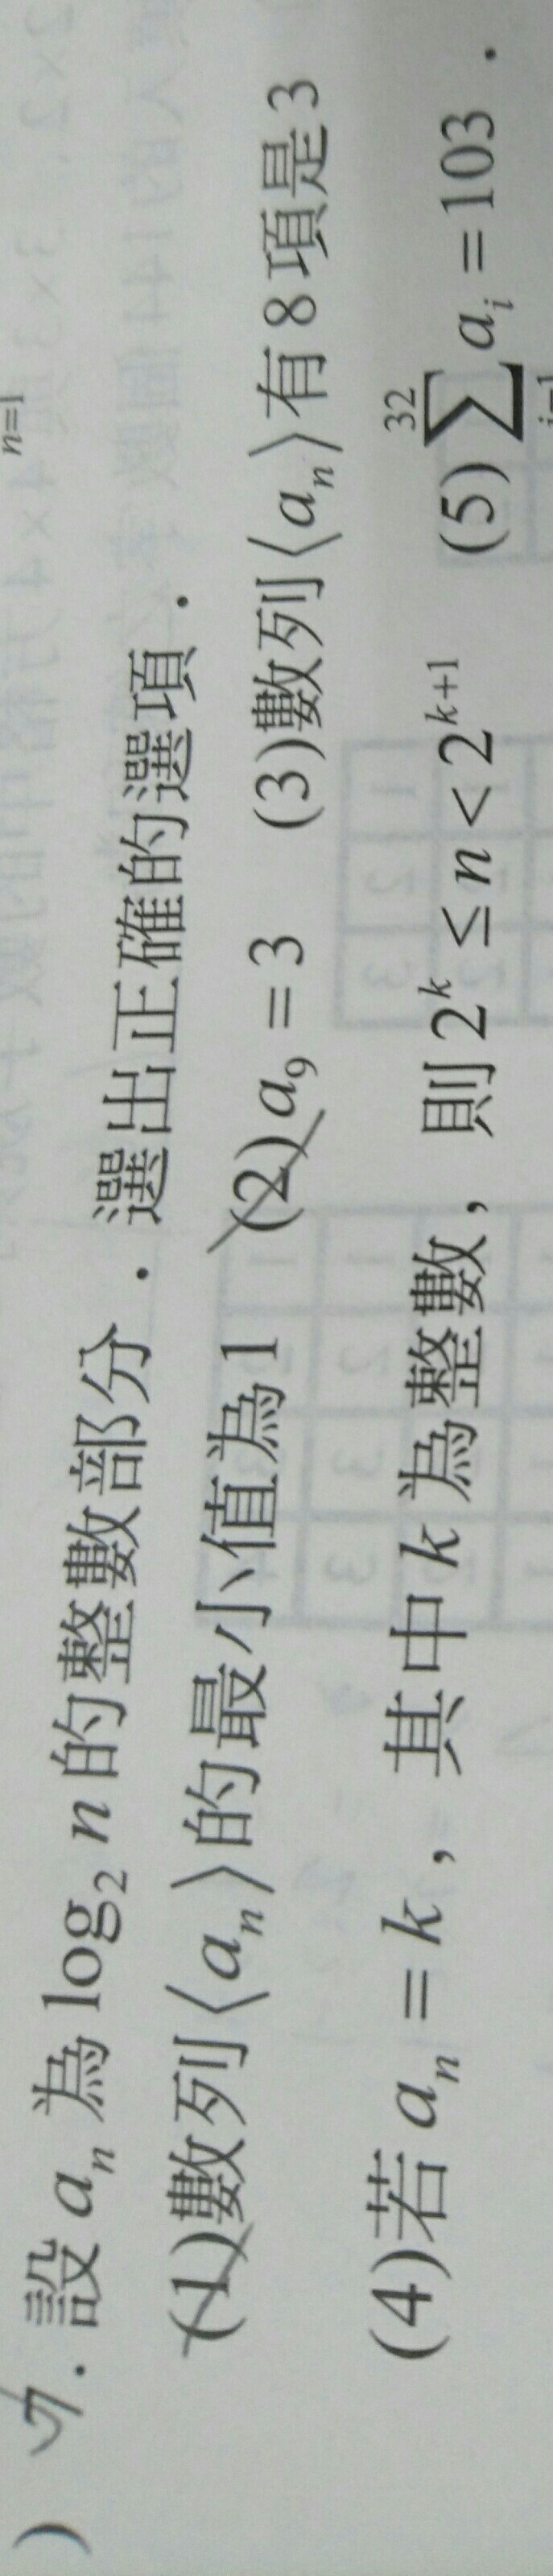 n=1
) 7. 設 aₙ 為 log₂ n 的整數部分．選出正確的選項．
(1)數列⟨aₙ⟩的最小值為1 (2)a₉ = 3 (3)數列⟨aₙ⟩有8項是3
(4)若 aₙ = k，其中 k 為整數，則 2ᵏ ≤ n < 2ᵏ⁺¹ (5) ∑_{i=1}^{32} aᵢ = 103．